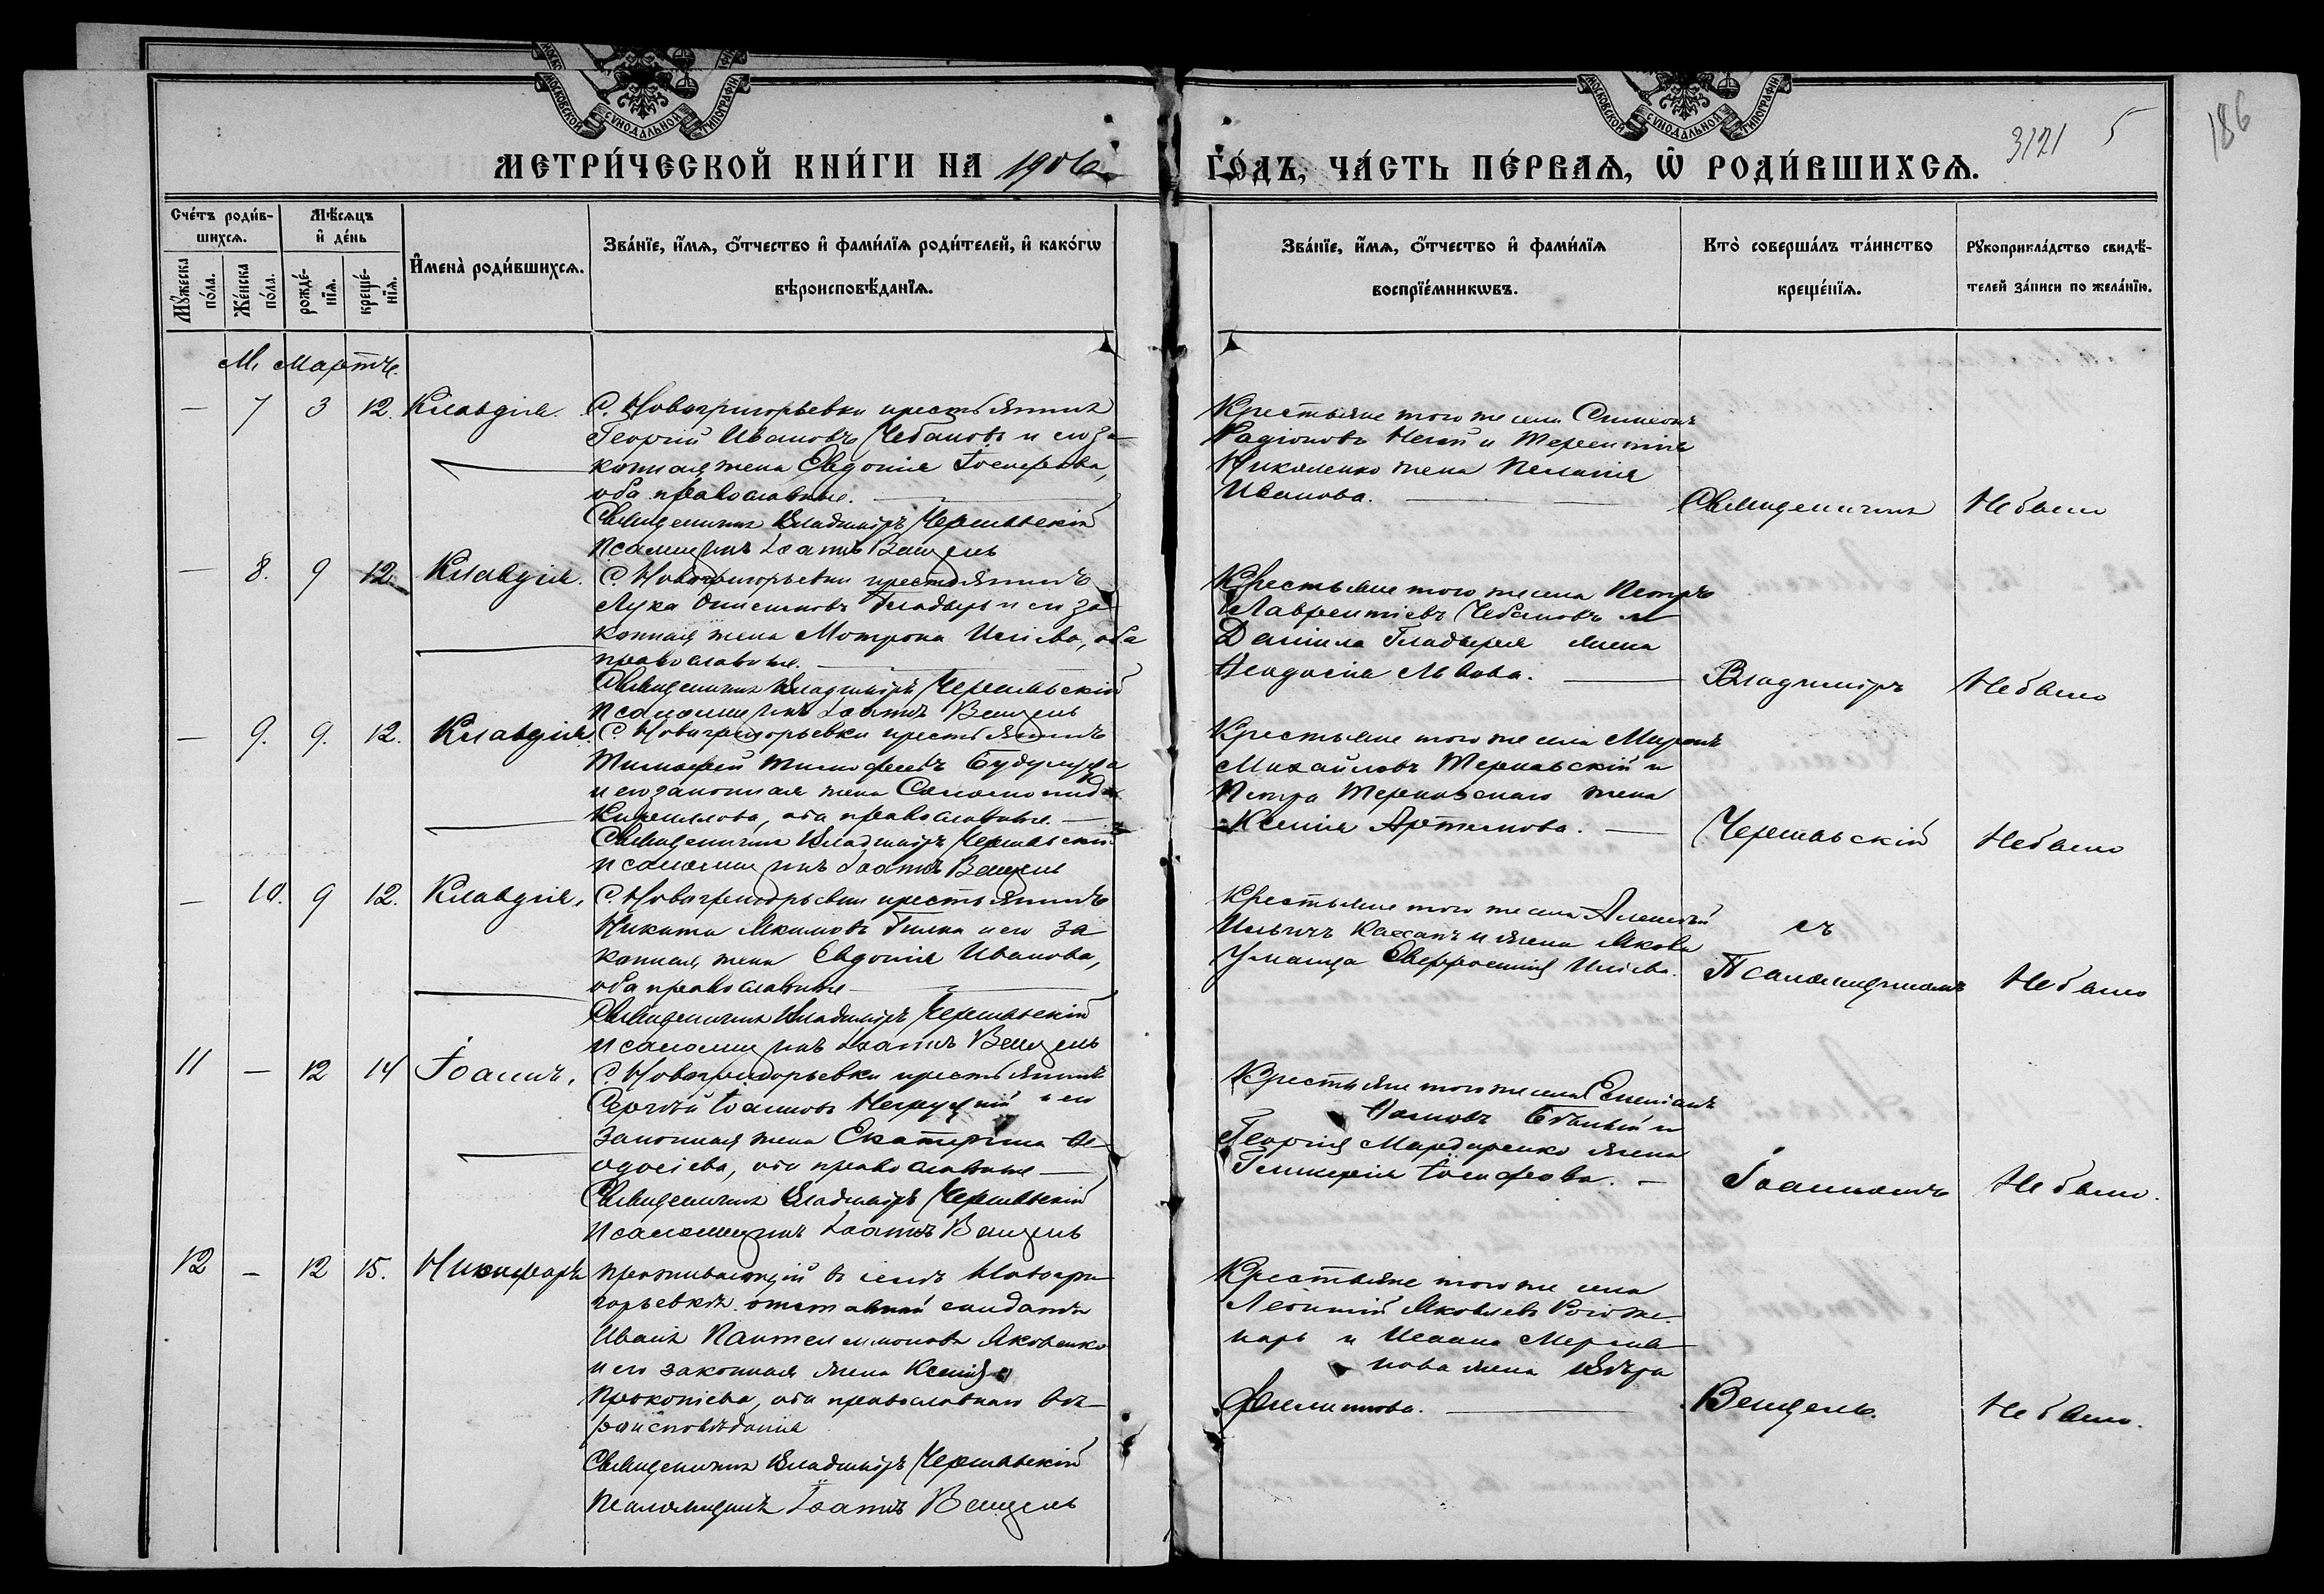 МОСКОВСКОЙ СѴНОДАЛЬНОЙ ТИПОГРАФІИ
МОСКОВСКОЙ СѴНОДАЛЬНОЙ ТИПОГРАФІИ
МЕТРИ́ЧЕСКОЙ КНИ́ГИ НА 1906
ГО́ДЪ, ЧА́СТЬ ПЕ́РВАѦ, Ѡ҆ РОДИ́ВШИХСѦ.
3121 5
186
Сче́тъ роди́в-
шихсѧ.
Мѣ́сѧцъ
и҆ де́нь
Мꙋ́жеска по́ла.
Же́нска по́ла.
рожде́-
нїѧ.
креще́-
нїѧ.
И҆мена̀ роди́вшихсѧ.
Зва́нїе, и҆́мѧ, ѻ҆́тчество и҆ фами́лїѧ роди́телей, и҆ како́гѡ
вѣроисповѣ́данїѧ.
Зва́нїе, и҆́мѧ, ѻ҆́тчество и҆ фами́лїѧ
воспрїе́мникѡвъ.
Кто̀ соверша́лъ та́инство
креще́нїѧ.
Рꙋкоприкла́дство свидѣ́-
телей за́писи по жела́нїю.
М. Мартъ.
— 7 3 12. Клавдія.
С. Новогригорьевки крестьянинъ
Георгій Ивановъ Чебановъ и его за-
конная жена Евдокія Іосифова,
оба православные.
Священникъ Владиміръ Чернявскій
Псаломщикъ Іоаннъ Венгель
Крестьяне того же села Симеонъ
Радіоновъ и Терентія
Николенко жена Пелагія
Иванова.
Священникъ
Не было
— 8. 9 12. Клавдія.
С. Новогригорьевки крестьянинъ
Лука Гладырь и его за-
конная жена Мотрона Иліева, оба
православные.
Священникъ Владиміръ Чернявскій
Псаломщикъ Іоаннъ Венгель
Крестьяне того же села Петръ
Лаврентіевъ Чебановъ и
Даніила Гладыря жена
Ѳеодосія Львова.
Владиміръ
Не было
— 9. 9. 12. Клавдія.
С. Новогригорьевки крестьянинъ
Тимофей Тимофеевъ
и его законная жена Соломонида
Кириллова, оба православные.
Священникъ Владиміръ Чернявскій
Псаломщикъ Іоаннъ Венгель
Крестьяне того же села Миронъ
Михайловъ Терновскій и
Петра Терновскаго жена
Ксенія Артемова.
Чернявскій
Не было
— 10. 9 12. Клавдія.
С. Новогригорьевки крестьянинъ
Никита Акимовъ и его за
конная жена Евдокія Иванова,
оба православные
Священникъ Владиміръ Чернявскій
Псаломщикъ Іоаннъ Венгель
Крестьяне того же села Алексѣй
Ильичъ и жена Якова
Уманца Евфросинія Иліева.
съ
Псаломщикомъ
Не было
11 — 12 14 Іоаннъ.
С. Новогригорьевки крестьянинъ
Сергѣй Іоанновъ и его
законная жена Екатерина Ѳе-
одосіева, оба православные
Священникъ Владиміръ Чернявскій
Псаломщикъ Іоаннъ Венгель
Крестьяне того же села
Георгія Мардаренко жена
Гликерія Іосифова.
Іоанномъ
Не было.
12 — 12 15. Никифоръ
проживающій въ селѣ Новогри-
горьевкѣ отставной солдатъ
Иванъ Пантелеимоновъ Яковенко
и его законная жена Ксенія
Прокопіева, оба православнаго вѣ-
роисповѣданія
Священникъ Владиміръ Чернявскій
Псаломщикъ Іоаннъ Венгель
Крестьяне того же села
Леонтій Яковлевъ
и
жена Вѣра
Филиппова.
Венгель.
Не было.